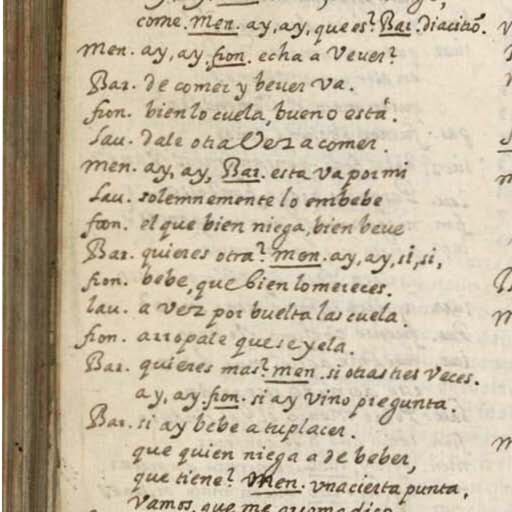 come. Men. ay, ay, que es? Bar. diacitrō.
Men. ay, ay. fion. echa a Vever?
Bar. de comer y bever va.
fion. bien lo cuela, bueno está.
Lau. dale otra Vez a comer.
Men. ay, ay, Bar. esta va por mi
Lau. solemnemente lo embebe
fion. el que bien niega, bien beve
Bar. quieres otra? men. ay, ay, si, si,
fion. bebe, que bien lo mereces.
lau. a Vez por buelta las cuela.
fion. arropale que se yela.
Bar. quieres mas? men. si otras tres veces.
ay, ay. fion. si ay vino pregunta.
Bar. si ay bebe a tu placer.
que quien niega a de beber,
que tiene? Men. vna cierta punta,
Vamos, que me